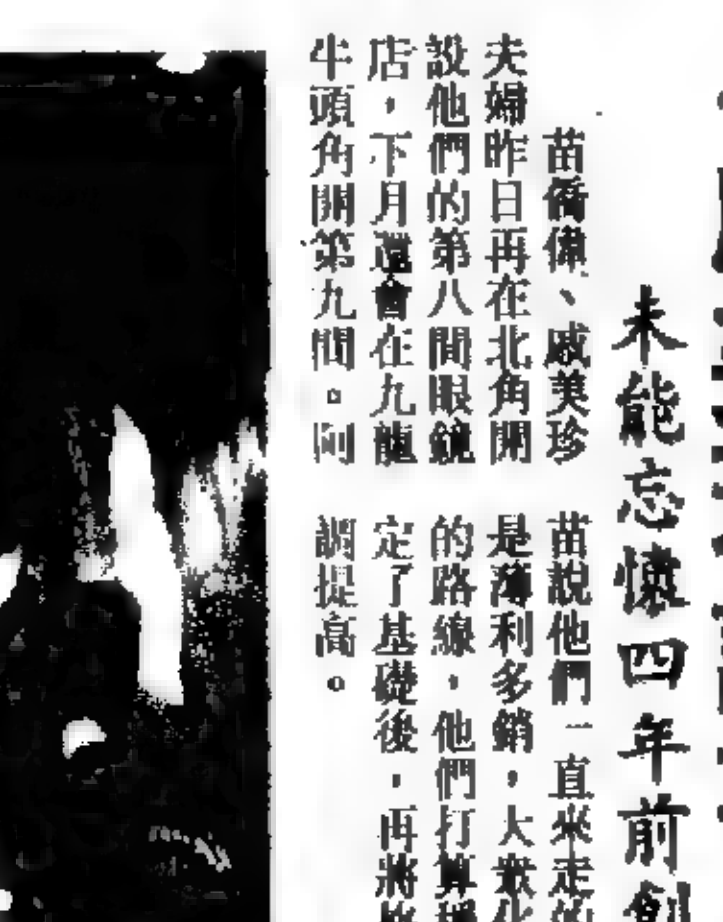 未能忘懷四年前
苗僑偉、戚美珍
夫婦昨日再在北角開
設他們的第八間眼鏡
店，下月還會在九龍
牛頭角開第九間。剛
苗說他們一直來走的
是薄利多銷，大眾化
的路線，他們打算穩
定了基礎後，再將
調提高。